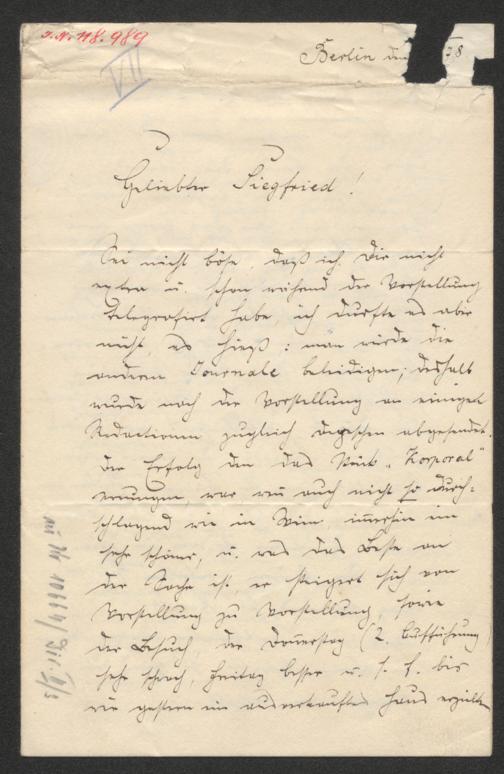 J.N. 118.989
VII
Berlin den 78
Geliebter Siegfried!
Sei nicht böse, daß ich Dir nicht
extra u. schon während der Vorstellung
telegrafirt habe, ich durfte es aber
nicht, es hieß: man würde die
anderen Journale beleidigen; deshalb
wurde nach der Vorstellung an einigen
Redactionen zugleich Depeschen abgesendet.
Der Erfolg den das Stück „Korporal"
errungen, war nun auch nicht so durch-
schlagend wie in Wien, immerhin ein
sehr schöner, u. was das Beste an
der Sache ist, er steigert sich von
Vorstellung zu Vorstellung, sowie
der Besuch, der Donnerstag (2. Aufführung)
sehr schwach, Freitag besser u. s. f. bis
wir gestern ein ausverkauftes Haus erzielten